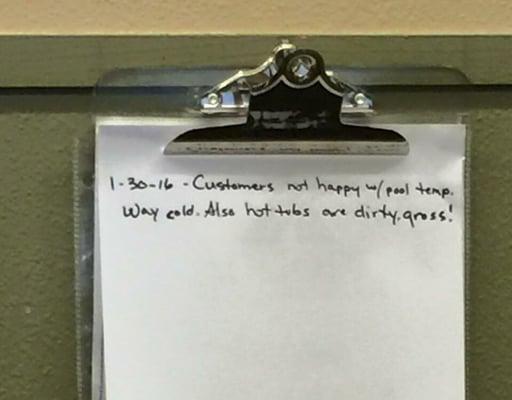 1-30-16 - Customers not happy w/ pool temp.
Way cold. Also hot tubs are dirty, gross!